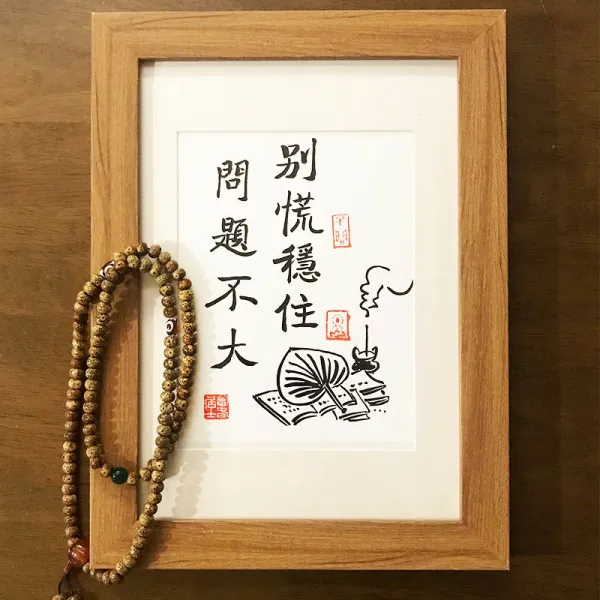 别慌穩住
問題不大